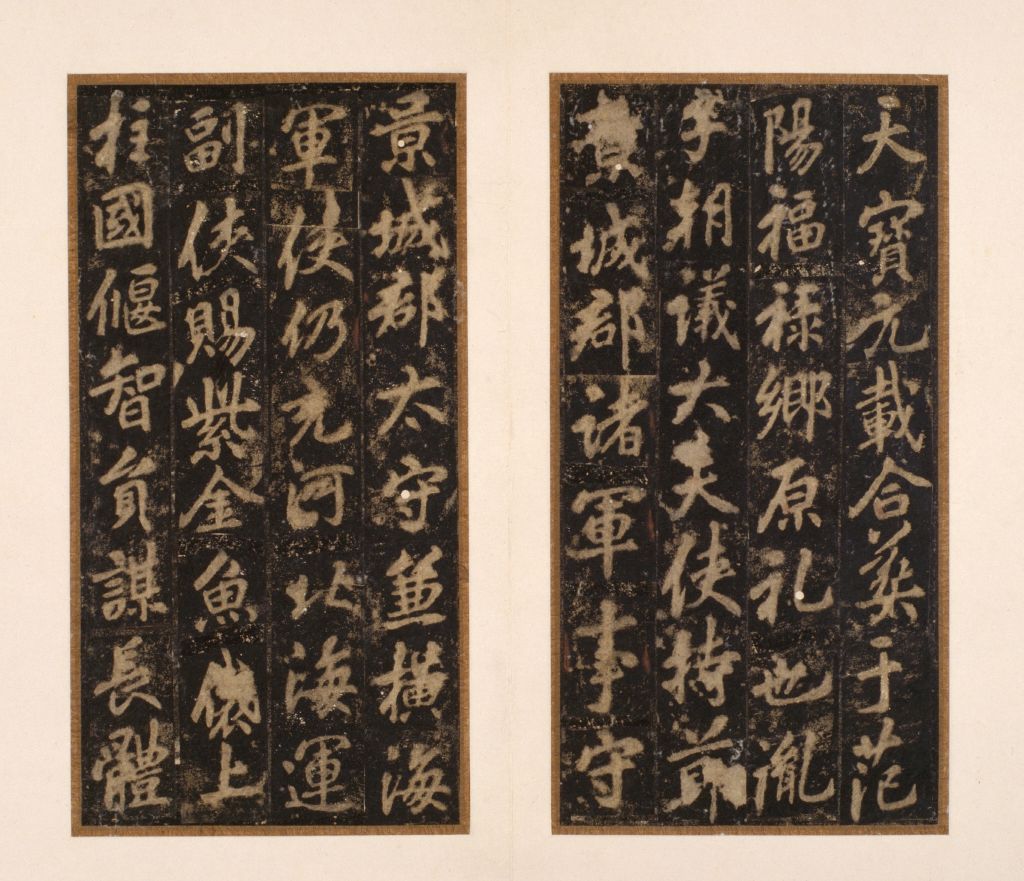 天寶元載合葬于范
陽福祿鄉原礼也胤
子朝議大夫使持節
景城郡諸軍事守
景城郡太守兼橫海
軍使仍充河北海運
副使賜紫金魚袋上
柱國偃智負謀長體